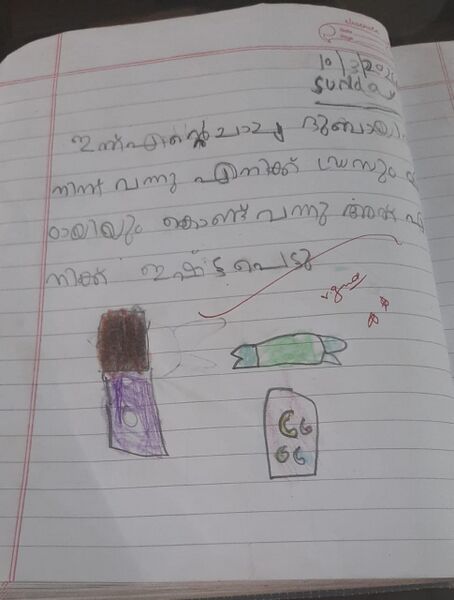 10/3/2024
Sunday
ഇന്ന് എന്റെ ചാച്ച ദുബായി
നിന്ന് വന്നു എനിക്ക് ഡ്രസും
ഠായിയും കൊണ്ട് വന്നു അത് എ
നിക്ക് ഇഷ്ട്ടപെട്ടു